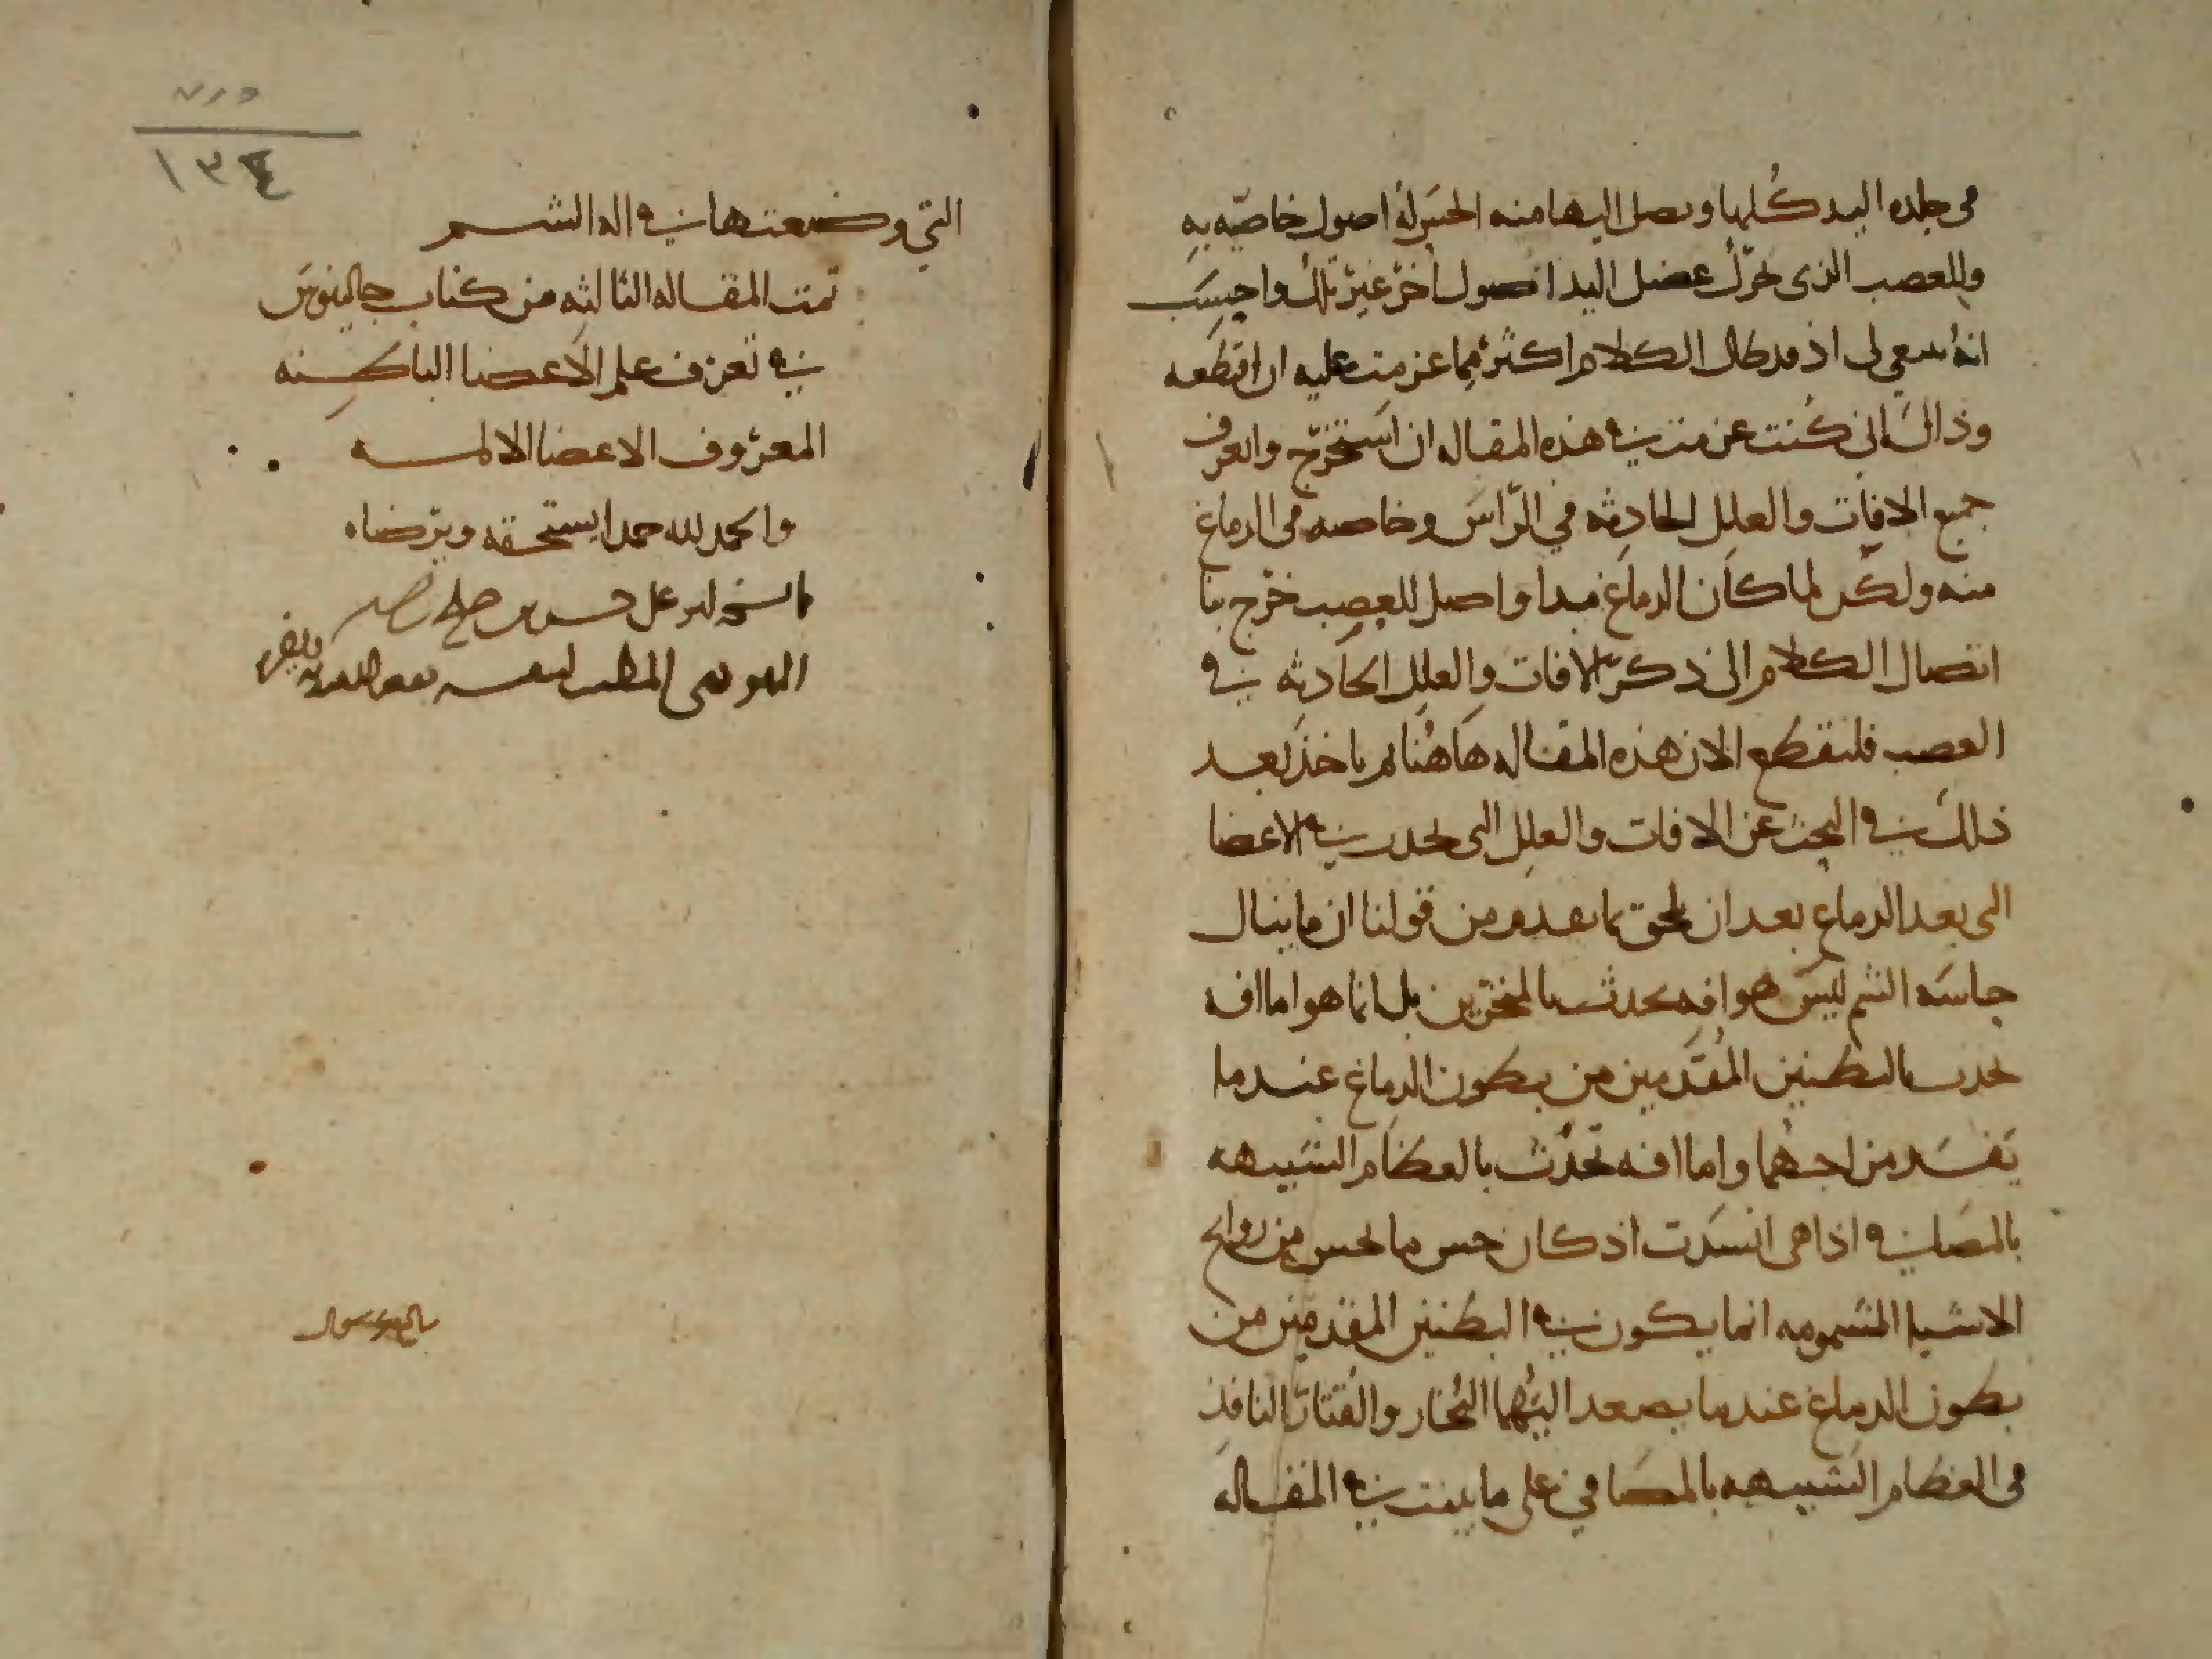 في جلده اليد كلها ويصل اليها منه الحس له اصول خاصه به
وللعصب الذى يحرك عضل اليد اصول أخر غير تلك واحسب
انه ينبغي لى اذ قد طال الكلام اكثر مما عزمت عليه ان اقطعه
وذاك اني كنت عزمت في هذه المقاله ان استخرج واتعرف
جميع الافات والعلل الحادثه في الراس وخاصه في الدماغ
منه ولكن لما كان الدماغ مبدا واصل للعصب خرج بنا
اتصال الكلام الى ذكر الافات والعلل الحادثه في
العصب فلنقطع الان هذه المقاله هاهنا ثم ناخذ بعد
ذلك في البحث عن الافات والعلل التي تحدث في الاعضا
التي بعد الدماغ بعد ان نلحق بما تقدم من قولنا ان ما ينال
حاسه الشم ليس هو افه تحدث بالمنخرين بل انما هو اما افه
تحدث بالبطنين المقدمين من بطون الدماغ عندما
يفسد مزاجهما واما افه تحدث بالعظام الشبيهه
بالمصافي اذا هي انسدت اذ كان حس ما يحس من روايح
الاشيا المشمومه انما يكون في البطنين المقدمين من
بطون الدماغ عندما يصعد اليهما البخار والقتار النافذ
في العظام الشبيهه بالمصافي على ما بينت في المقاله
٥١٧
١٣٤
التي وضعتها في اله الشم
تمت المقاله الثالثه من كتاب جالينوس
في تعرف علم الاعضا الباطنه
المعروف الاعضا الالمه
والحمد لله حمدا يستحقه ويرضاه
حسين بن
المتطبب لنفسه